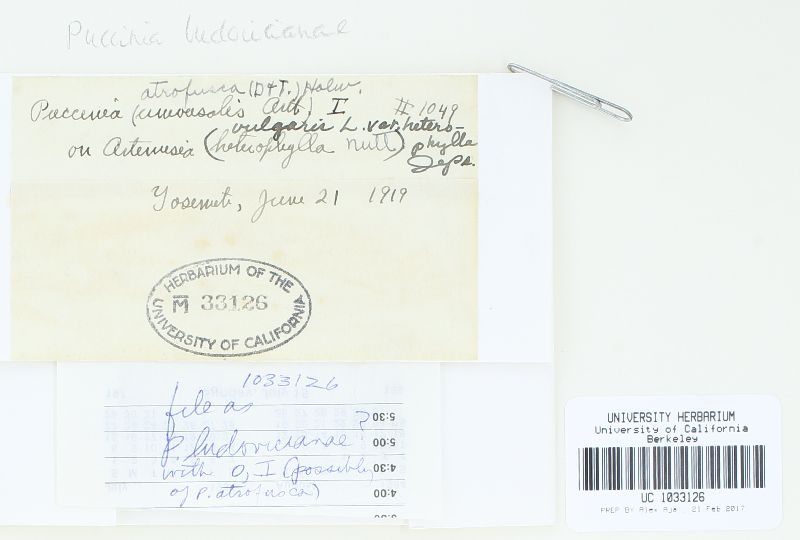 Puccinia ludovicianae
atrofusca (D+T.) Holw.
Puccinia (universalis Arth) I # 1049
vulgaris L. var. hetero-
on Artemisia (heterophylla Nutt) phylla
Jeps.
Yosemite, June 21 1919
HERBARIUM OF THE
M 33126
UNIVERSITY OF CALIFORNIA
1033126
file as ?
P. ludovicianae
with O, I (possibly
of P. atrofusca)
5:30
5:00
4:30
4:00
UNIVERSITY HERBARIUM
University of California
Berkeley
UC 1033126
PREP BY Alex Aja 21 Feb 2017